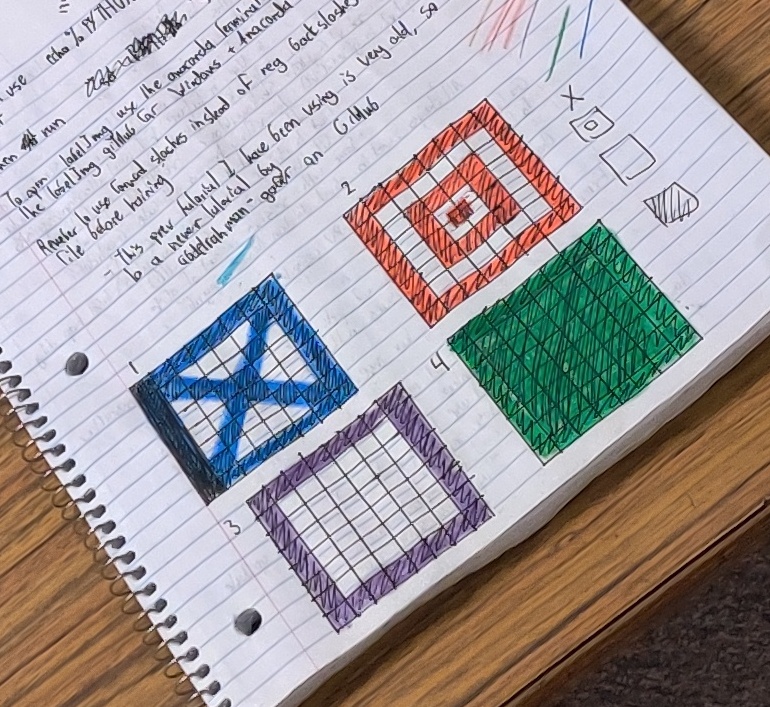 use echo % PYTHON
run
To open labelImg use the anaconda terminal
the labelImg github for Windows + Anaconda
to use forward slashes instead of reg back slashes
file before training
- This prev tutorial I have been using is very old, so
to a newer tutorial by
abdelrahman - gobr on GitHub
2
1
4
3